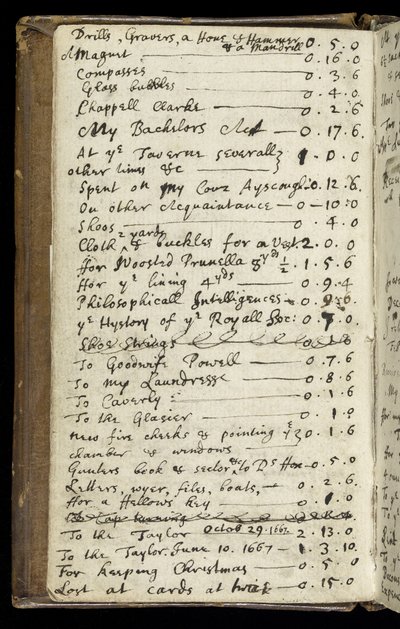 Drills, Gravers, a Hone & Hammer
& a Mandrill 0. 5. 0
A Magnet 0. 16. 0
Compasses 0. 3. 6
Glass bubbles 0. 4. 0
Chappell Clarke 0. 2. 6
My Bachelors Act 0. 17. 6.
At yᵉ Taverne severall
other times &c 1. 0. 0
Spent on my Couz Ayscough 0. 12. 6.
On other Acquaintance 0-10-0
Shoos 0. 4. 0
Cloth 2 yards & buckles for a Vest 2. 0. 0
For Woosted Prunella 8 yᵈˢ ½ 1. 5. 6
For yᵉ lining 4 yᵈˢ 0. 9. 4
Philosophicall Intelligences 0.
yᵉ Hystory of yᵉ Royall Soc: 0. 7. 0.
Shoe Strings
To Goodwife Powell 0. 7. 6
To my Laundresse 0. 8. 6
To Caverly 0. 1. 6
To the Glasier 0. 1. 0
new fire cheeks & pointing yᵉ
chamber & windows 0. 1. 6
Gunters book & sector &c to Dˢ 0. 5. 0
Letters, wyer, files, boats, 0. 2. 6.
For a Fellows key 0. 1. 0
To the Taylor Octob 29. 1667. 2. 13. 0
To the Taylor. June 10. 1667 1. 3. 10.
For keeping Christmas 0. 5. 0
Lost at cards at twice 0. 15. 0